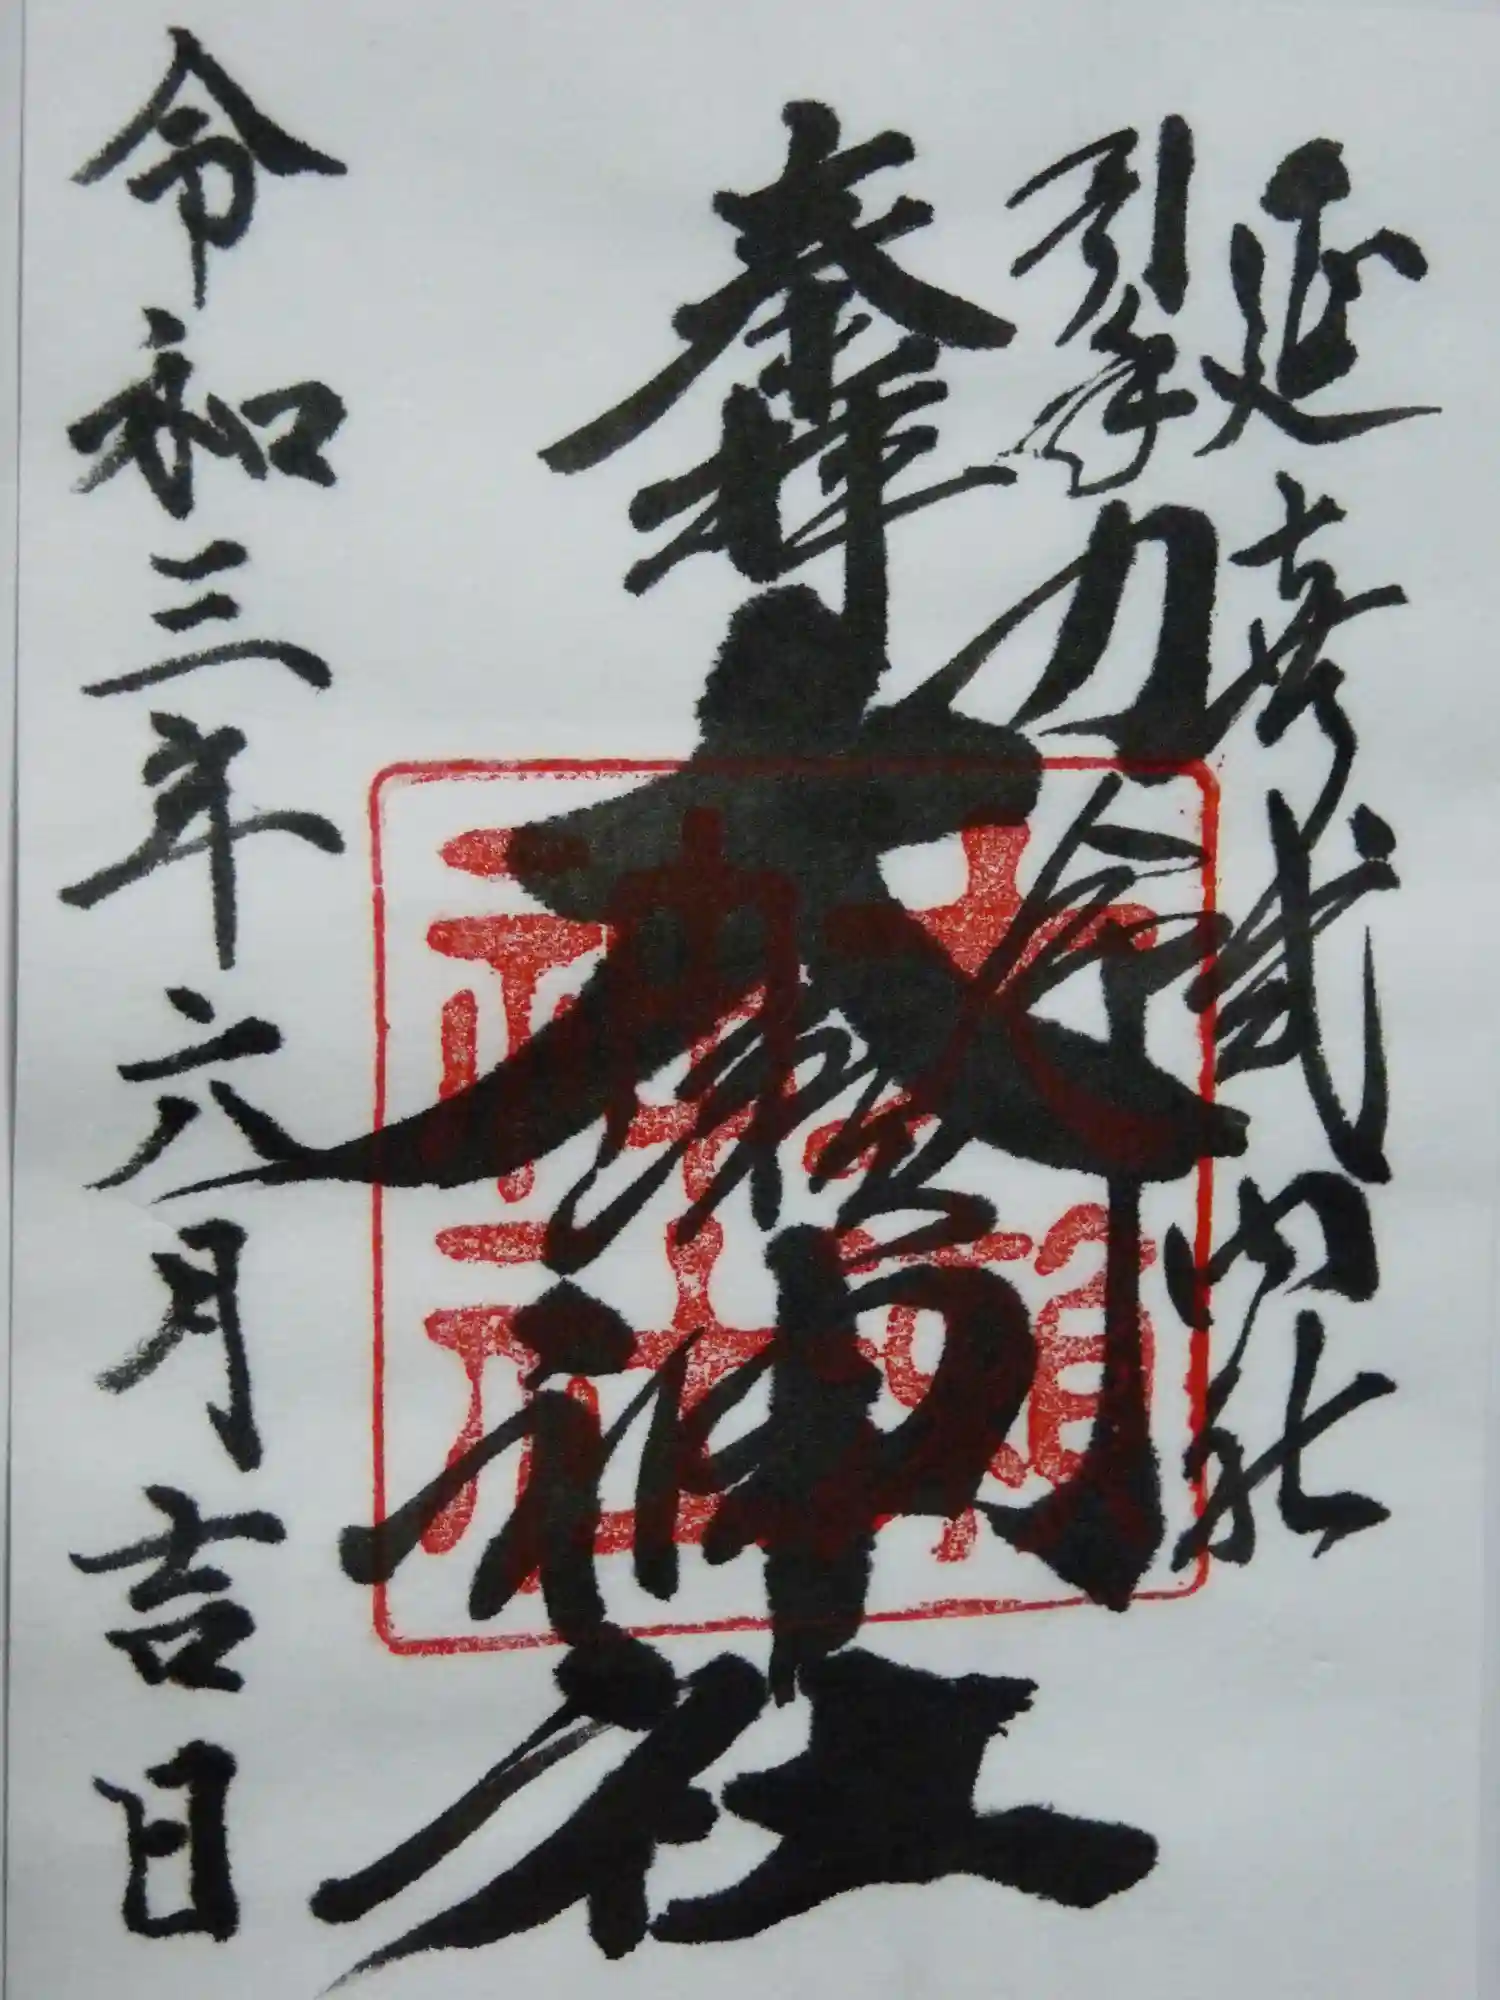 延喜式内社
引手力命
奉拝
大瀬神社
令和三年六月吉日
大瀬
神社